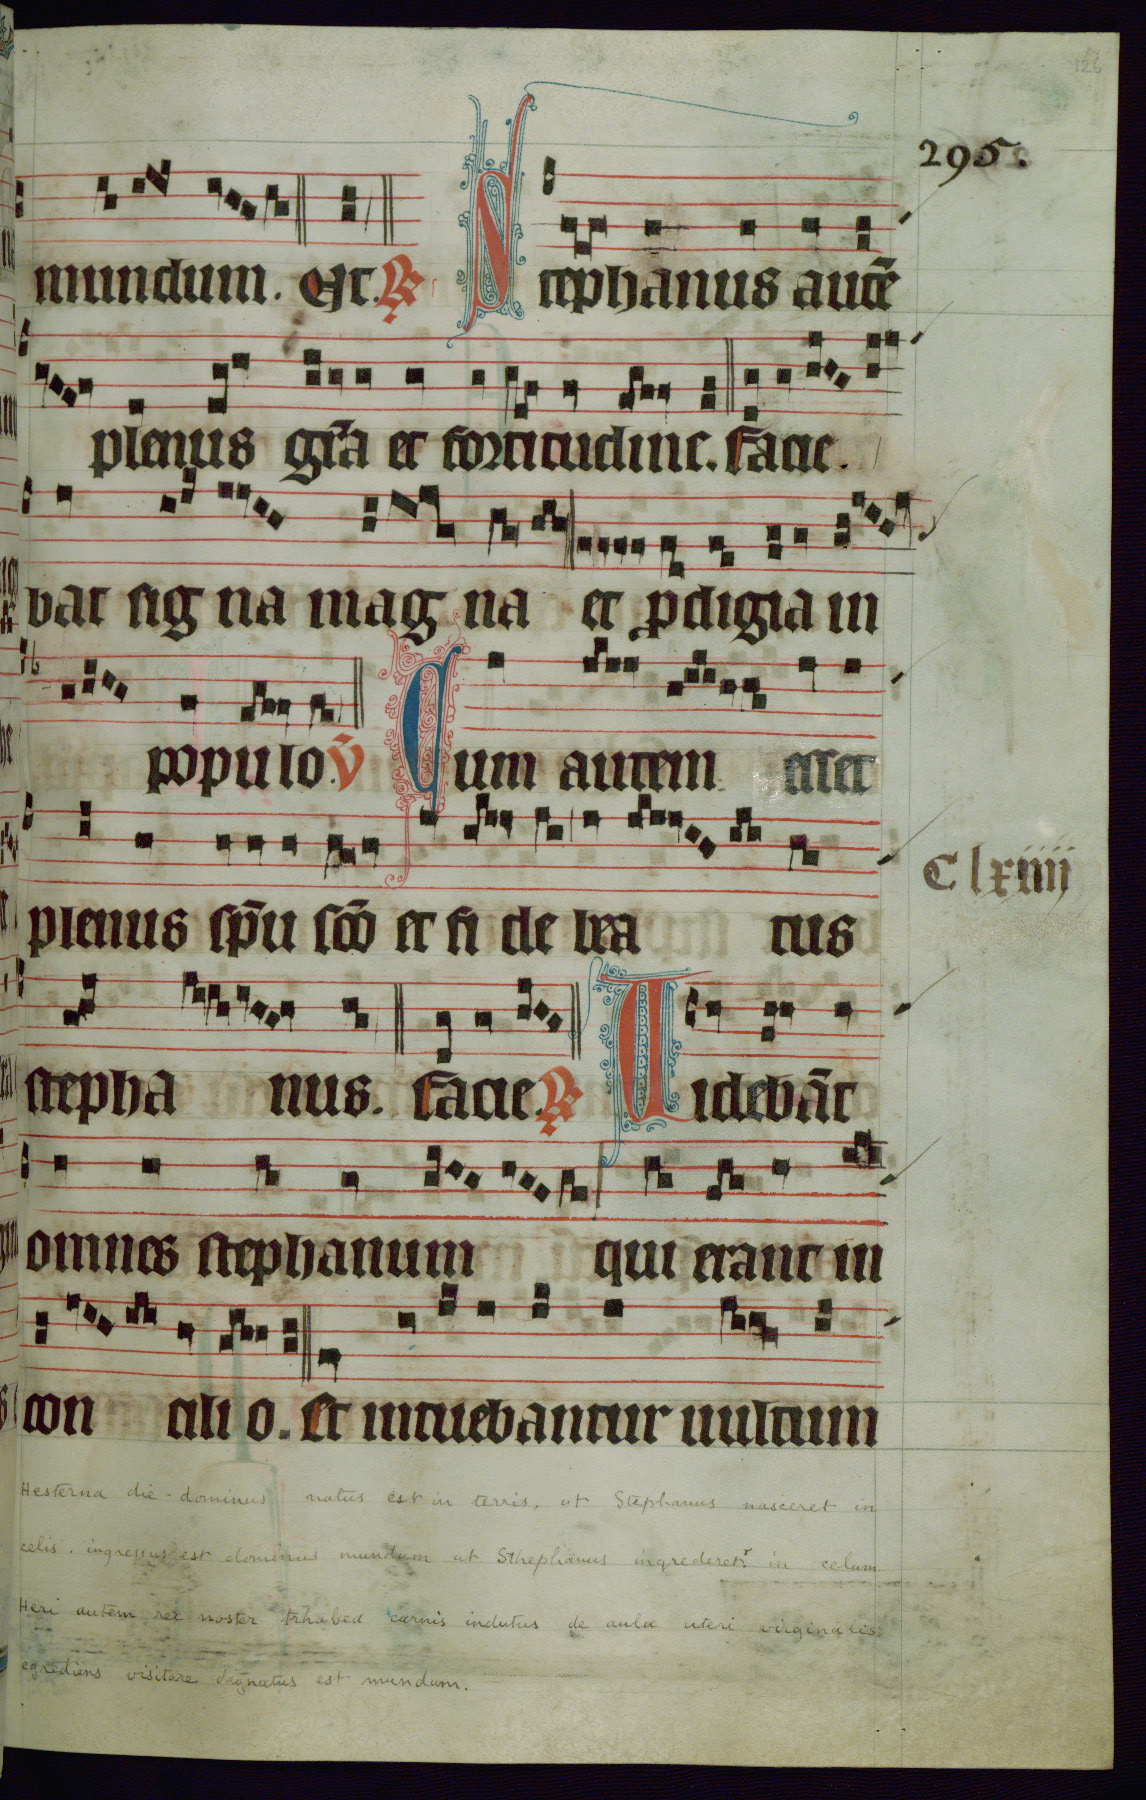 126
295.
mundum. Et. R Stephanus autē
plenus gr̄a et fortitudine. facie.
bat sig na mag na et ꝓdigia in
populo. V̄ Cum autem esset
plenus sp̄u sc̄o et fi de bea tus
C lxiiii
stepha nus. facie. R Uidebāt
omnes stephanum qui erant in
con cili o. Et intuebantur uultum
Hesterna die dominus natus est in terris, ut Stephanus nasceret in
celis. ingressus est dominus mundum ut Sthephanus ingrederetr in celum
Heri autem rex noster trhabea carnis indutus de aula uteri virginalis
egrediens visitare dignatus est mundum.